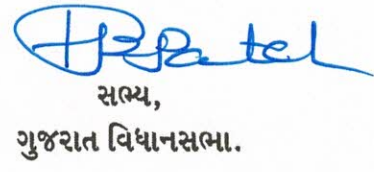 HRPatel
સભ્ય,
ગુજરાત વિધાનસભા.